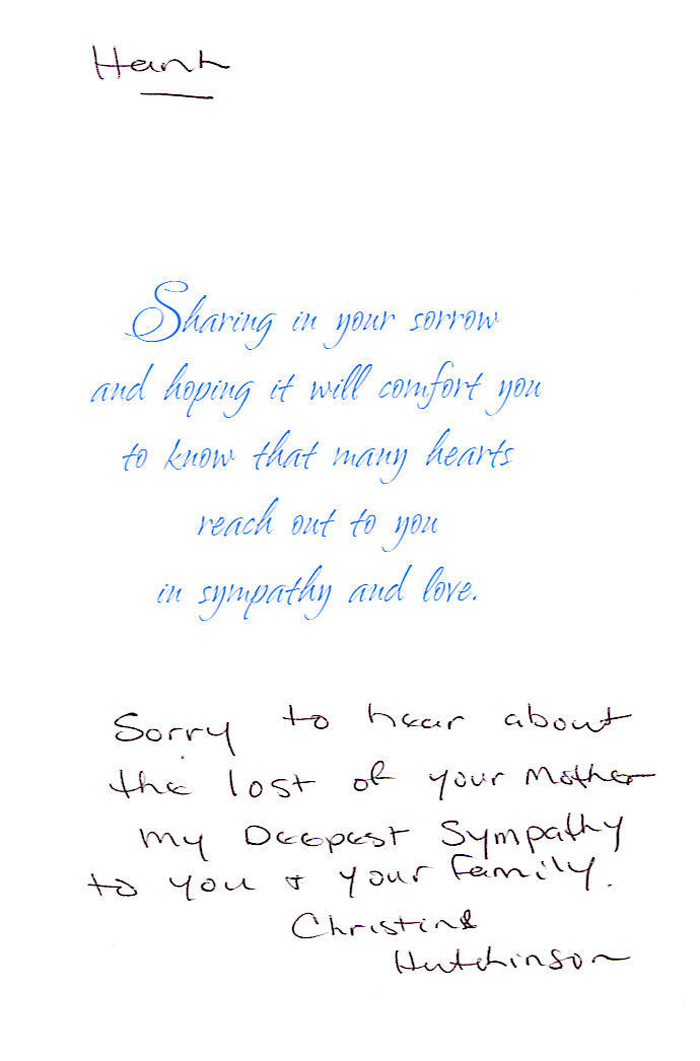 Hank
Sharing in your sorrow
and hoping it will comfort you
to know that many hearts
reach out to you
in sympathy and love.
Sorry to hear about
the lost of your Mother
My Deepest Sympathy
to you + your family.
Christine
Hutchinson